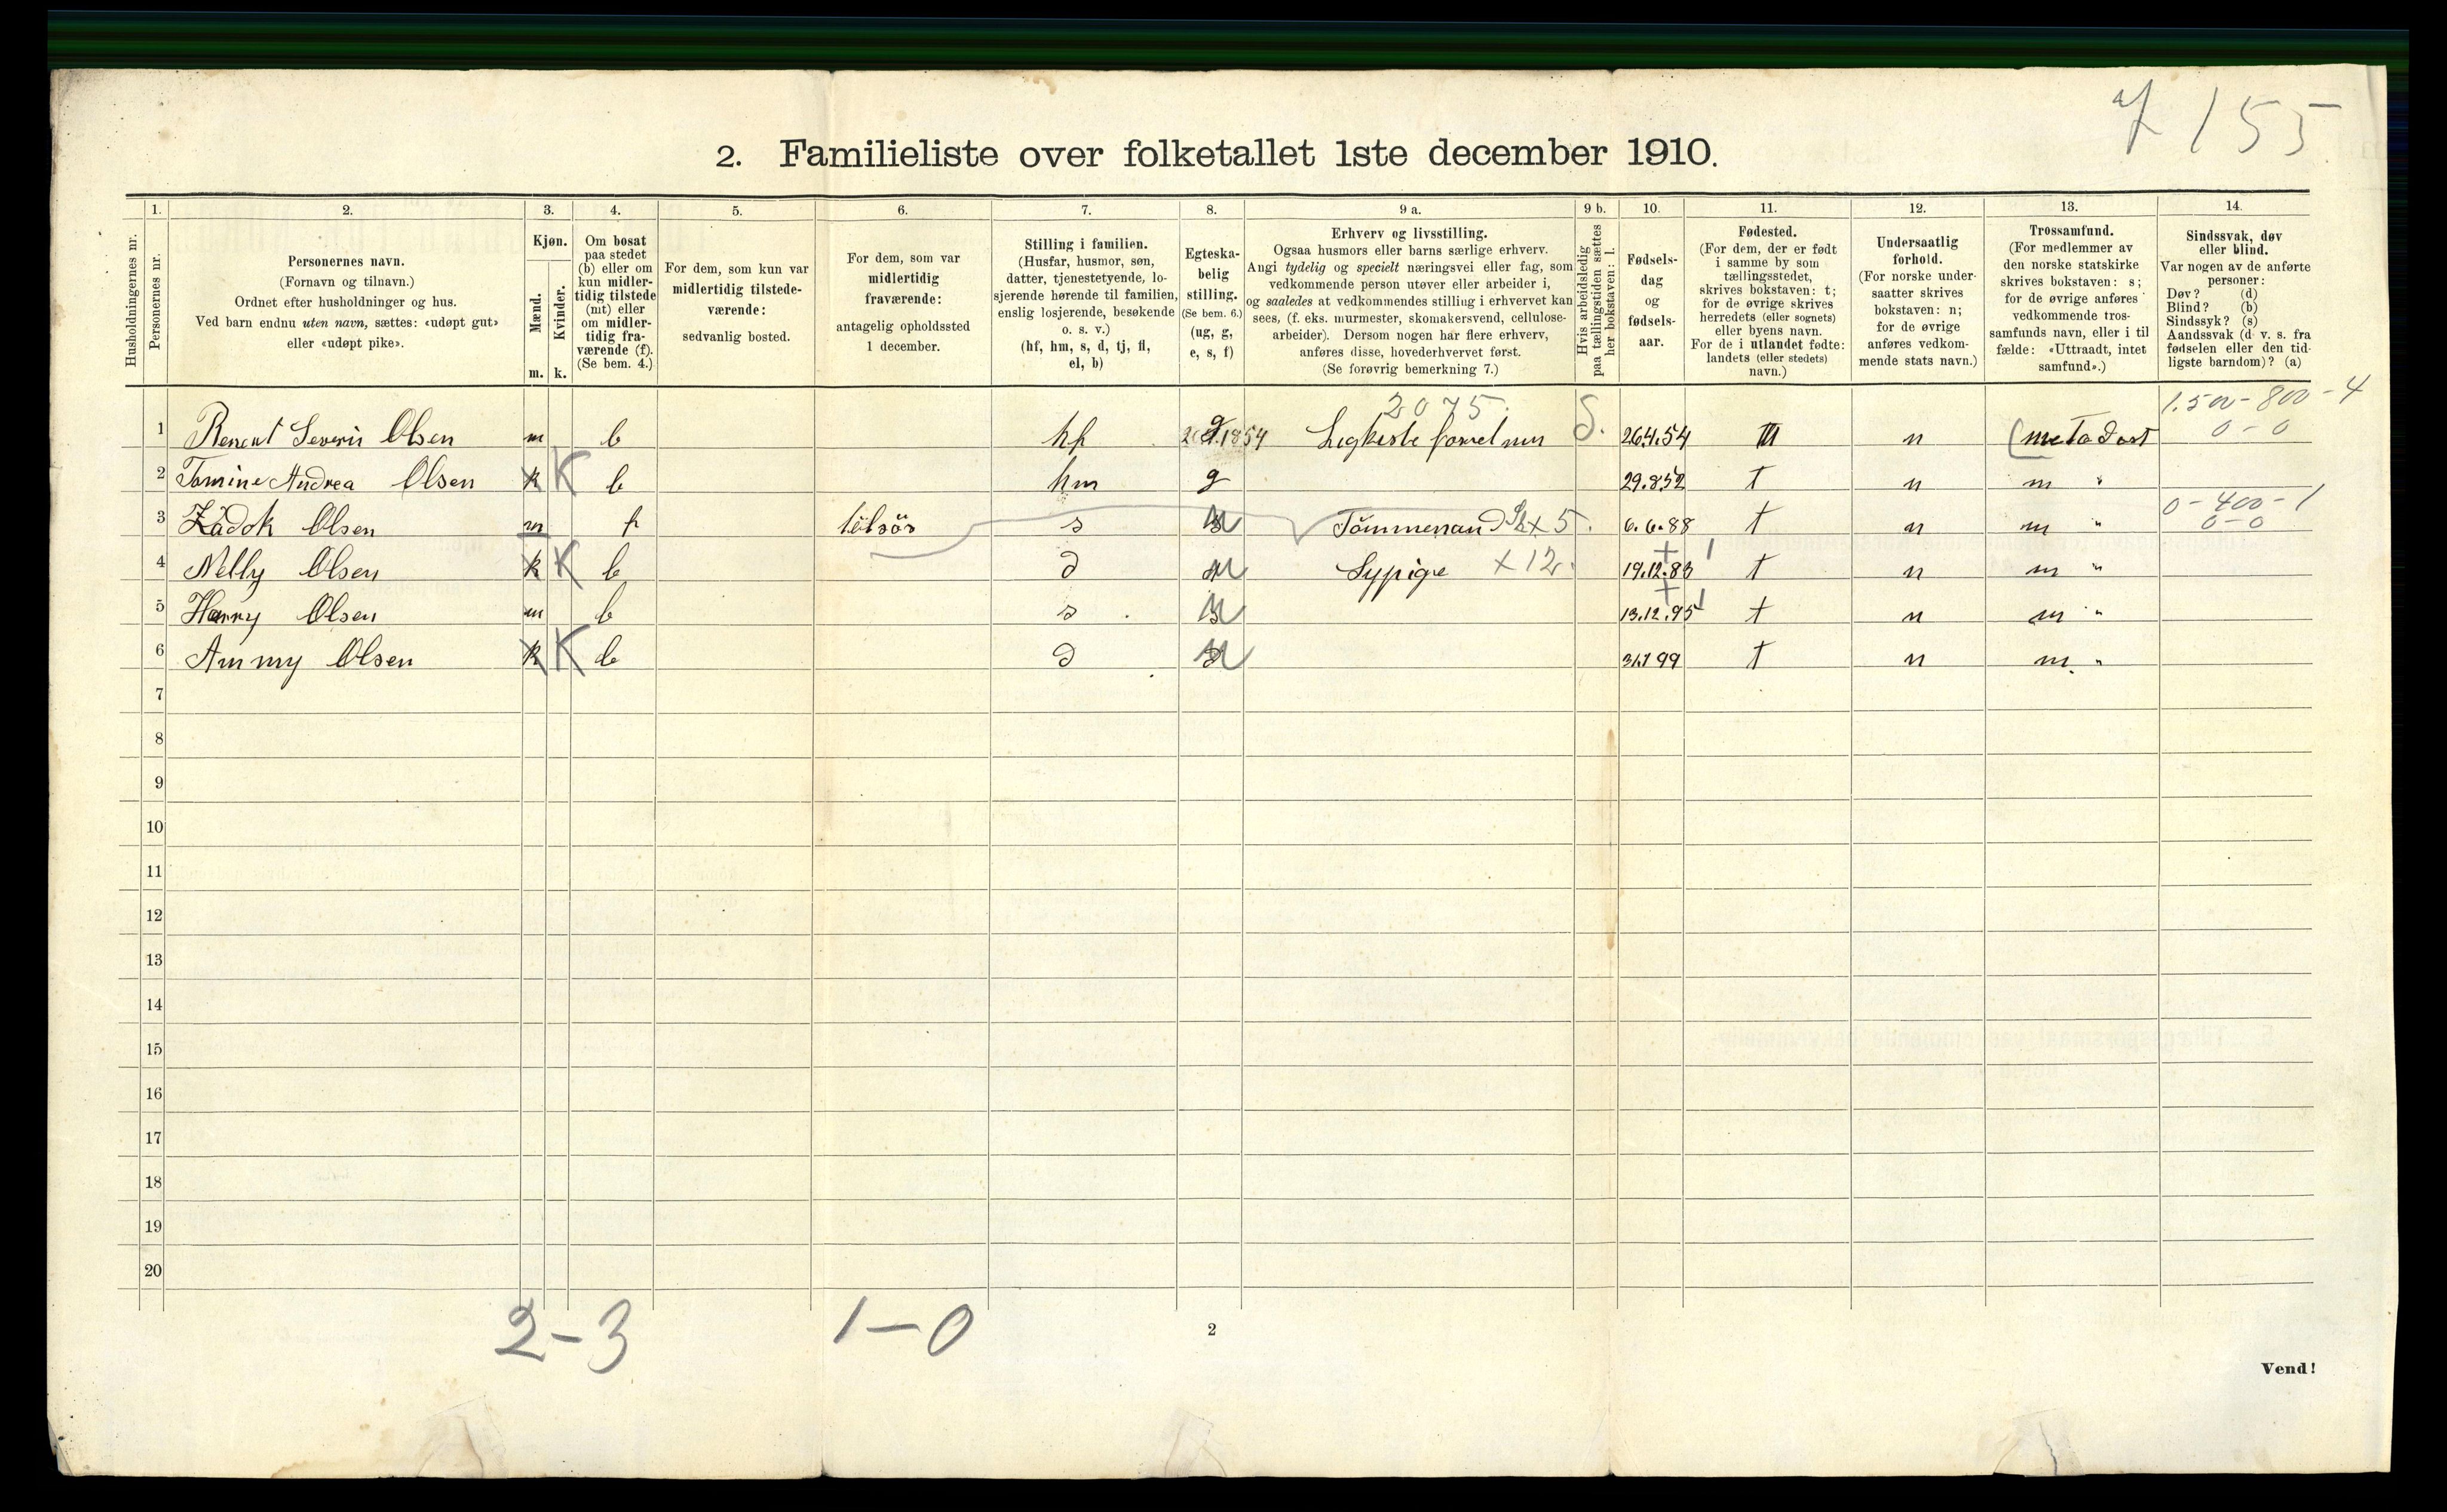 155
2. Familieliste over folketallet 1ste december 1910.
Husholdningernes nr.
1.
Personernes nr.
2.
Personernes navn.
(Fornavn og tilnavn.)
Ordnet efter husholdninger og hus.
Ved barn endnu uten navn, sættes: «udøpt gut»
eller «udøpt pike».
3.
Kjøn.
Mænd.
m.
Kvinder.
k.
4.
Om bosat
paa stedet
(b) eller om
kun midler-
tidig tilstede
(mt) eller
om midler-
tidig fra-
værende (f).
(Se bem. 4.)
5.
For dem, som kun var
midlertidig tilstede-
værende:
sedvanlig bosted.
6.
For dem, som var
midlertidig
fraværende:
antagelig opholdssted
1 december.
7.
Stilling i familien.
(Husfar, husmor, søn,
datter, tjenestetyende, lo-
sjerende hørende til familien,
enslig losjerende, besøkende
o. s. v.)
(hf, hm, s, d, tj, fl,
el, b)
8.
Egteska-
belig
stilling.
(Se bem. 6.)
(ug, g,
e, s, f)
9 a.
Erhverv og livsstilling.
Ogsaa husmors eller barns særlige erhverv.
Angi tydelig og specielt næringsvei eller fag, som
vedkommende person utøver eller arbeider i,
og saaledes at vedkommendes stilling i erhvervet kan
sees, (f. eks. murmester, skomakersvend, cellulose-
arbeider). Dersom nogen har flere erhverv,
anføres disse, hovederhvervet først.
(Se forøvrig bemerkning 7.)
9 b.
Hvis arbeidsledig
paa tællingstiden sættes
her bokstaven: l.
10.
Fødsels-
dag
og
fødsels-
aar.
11.
Fødested.
(For dem, der er født
i samme by som
tællingsstedet,
skrives bokstaven: t;
for de øvrige skrives
herredets (eller sognets)
eller byens navn.
For de i utlandet fødte:
landets (eller stedets)
navn.)
12.
Undersaatlig
forhold.
(For norske under-
saatter skrives
bokstaven: n;
for de øvrige
anføres vedkom-
mende stats navn.)
13.
Trossamfund.
(For medlemmer av
den norske statskirke
skrives bokstaven: s;
for de øvrige anføres
vedkommende tros-
samfunds navn, eller i til
fælde: «Uttraadt, intet
samfund».)
14.
Sindssvak, døv
eller blind.
Var nogen av de anførte
personer:
Døv? (d)
Blind? (b)
Sindssyk? (s)
Aandssvak (d. v. s. fra
fødselen eller den tid-
ligste barndom)? (a)
2075. 1.500-800-4
1 Severin Olsen m b hf g S. 26.4.54 n 0-0
2 Tomine Andrea Olsen k K b hm g 29.8.52 t n m "
0-400-1
3 Zadok Olsen m f s x 5. 6.6.88 t n m " 0-0
4 Nelly Olsen k K b d Sypige x 12. 19.12.83 t n m "
5 Harry Olsen m b s 13.12.95 t n m "
6 Ammy Olsen k K b d 31.1 99 t n m. "
7
8
9
10
11
12
13
14
15
16
17
18
19
20
2-3 1-0
2
Vend!